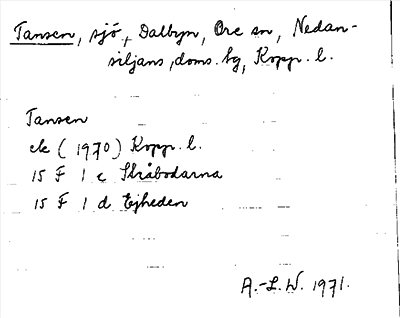 Tansen, sjö, Dalbyn, Ore sn, Nedan-
siljans, doms. hg, Kopp. l.
Tansen
ek (1970) Kopp. l.
15 F 1 c Skråbodarna
15 F 1 d Ejheden
A.-L. W. 1971.